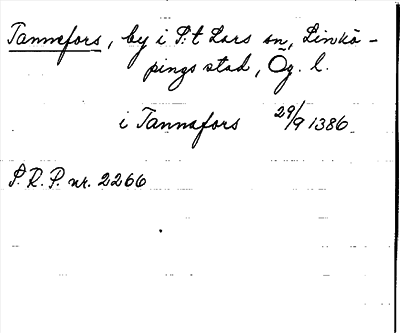 Tannefors, by i S:t Lars sn, Linkö-
pings stad, Ög. l.
i Tannafors 29/9 1386
S.R.P. nr. 2266